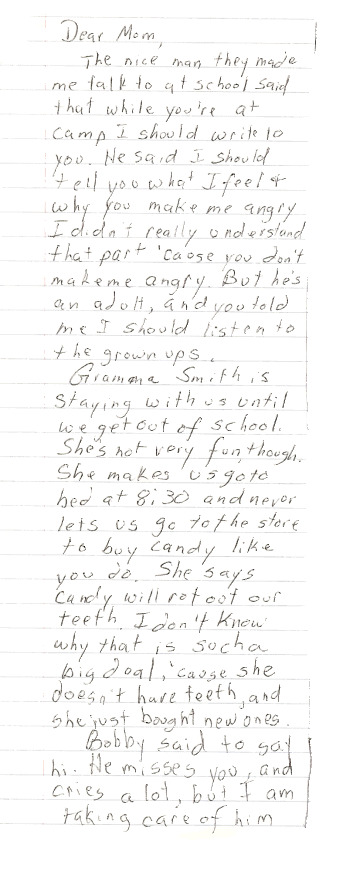 Dear Mom,
The nice man they made
me talk to at school said
that while you're at
camp I should write to
you. He said I should
tell you what I feel &
why you make me angry
I didn't really understand
that part 'cause you don't
make me angry. But he's
an adult, and you told
me I should listen to
the grown ups.
Gramma Smith is
staying with us until
we get out of school.
She's not very fun, though.
She makes us go to
bed at 8:30 and never
lets us go to the store
to buy candy like
you do. She says
candy will rot out our
teeth. I don't know
why that is such a
big deal, 'cause she
doesn't have teeth, and
she just bought new ones.
Bobby said to say
hi. He misses you, and
cries a lot, but I am
taking care of him